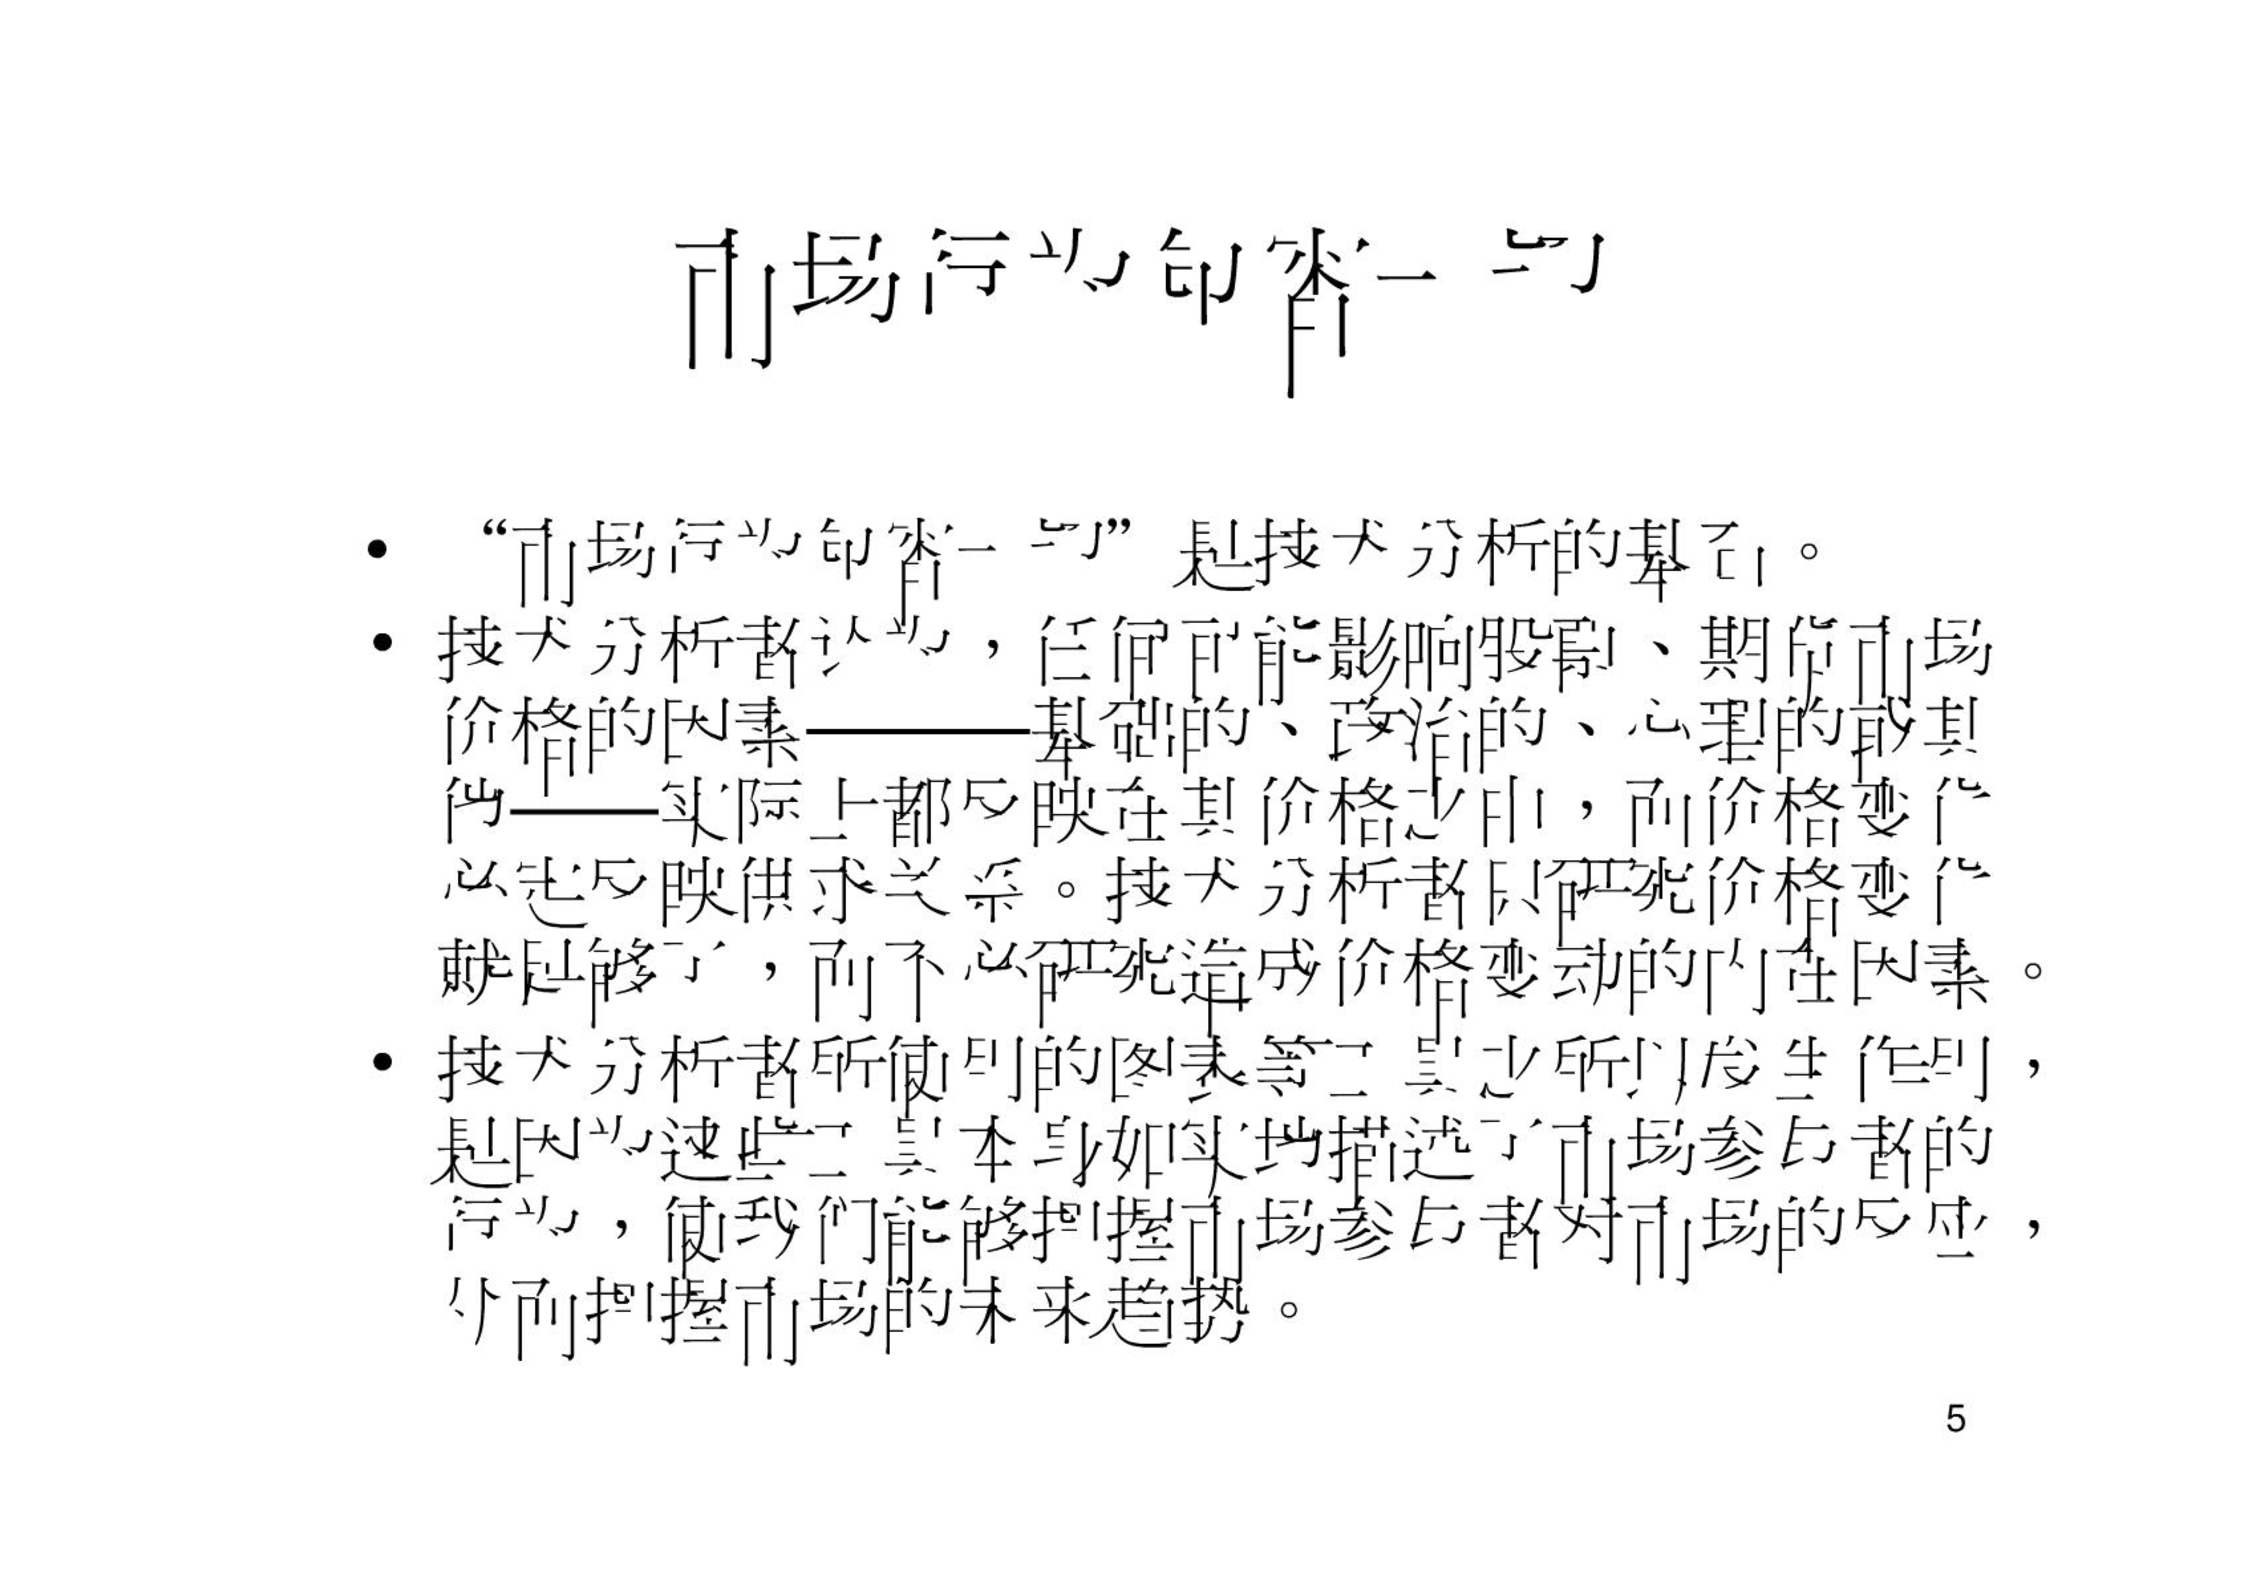 市场行为包容一切
• “市场行为包容一切”是技术分析的基石。
• 技术分析者认为，任何可能影响股票、期货市场
价格的因素———基础的、政治的、心理的或其
他——实际上都反映在其价格之中，而价格变化
必定反映供求关系。技术分析者只研究价格变化
就足够了，而不必研究造成价格变动的内在因素。
• 技术分析者所使用的图表等工具之所以发生作用，
是因为这些工具本身如实地描述了市场参与者的
行为，使我们能够把握市场参与者对市场的反应，
从而把握市场的未来趋势。
5